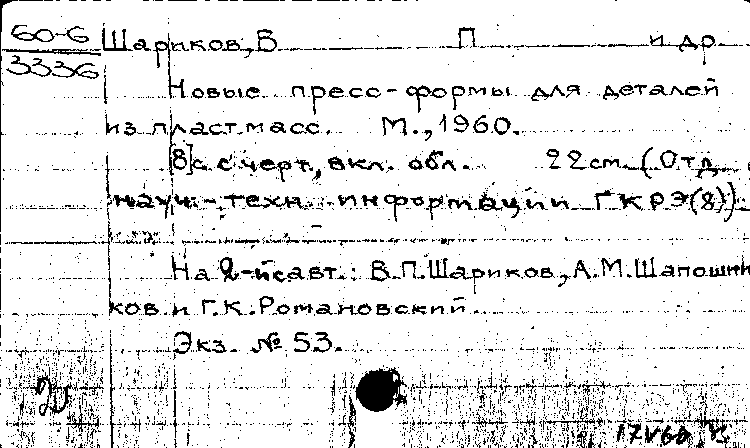 60-6 Шариков, В П и др.
3336
Новые пресс-формы для деталей
из пластмасс. М., 1960.
[8] с с черт., вкл. обл. 22 см. (Отд.
науч.-техн. информации ГКРЭ (8)).
На 2-й с авт.: В.П. Шариков, А.М. Шапошни
ков и Г.К. Романовский.
Экз. № 53.
17 V 60